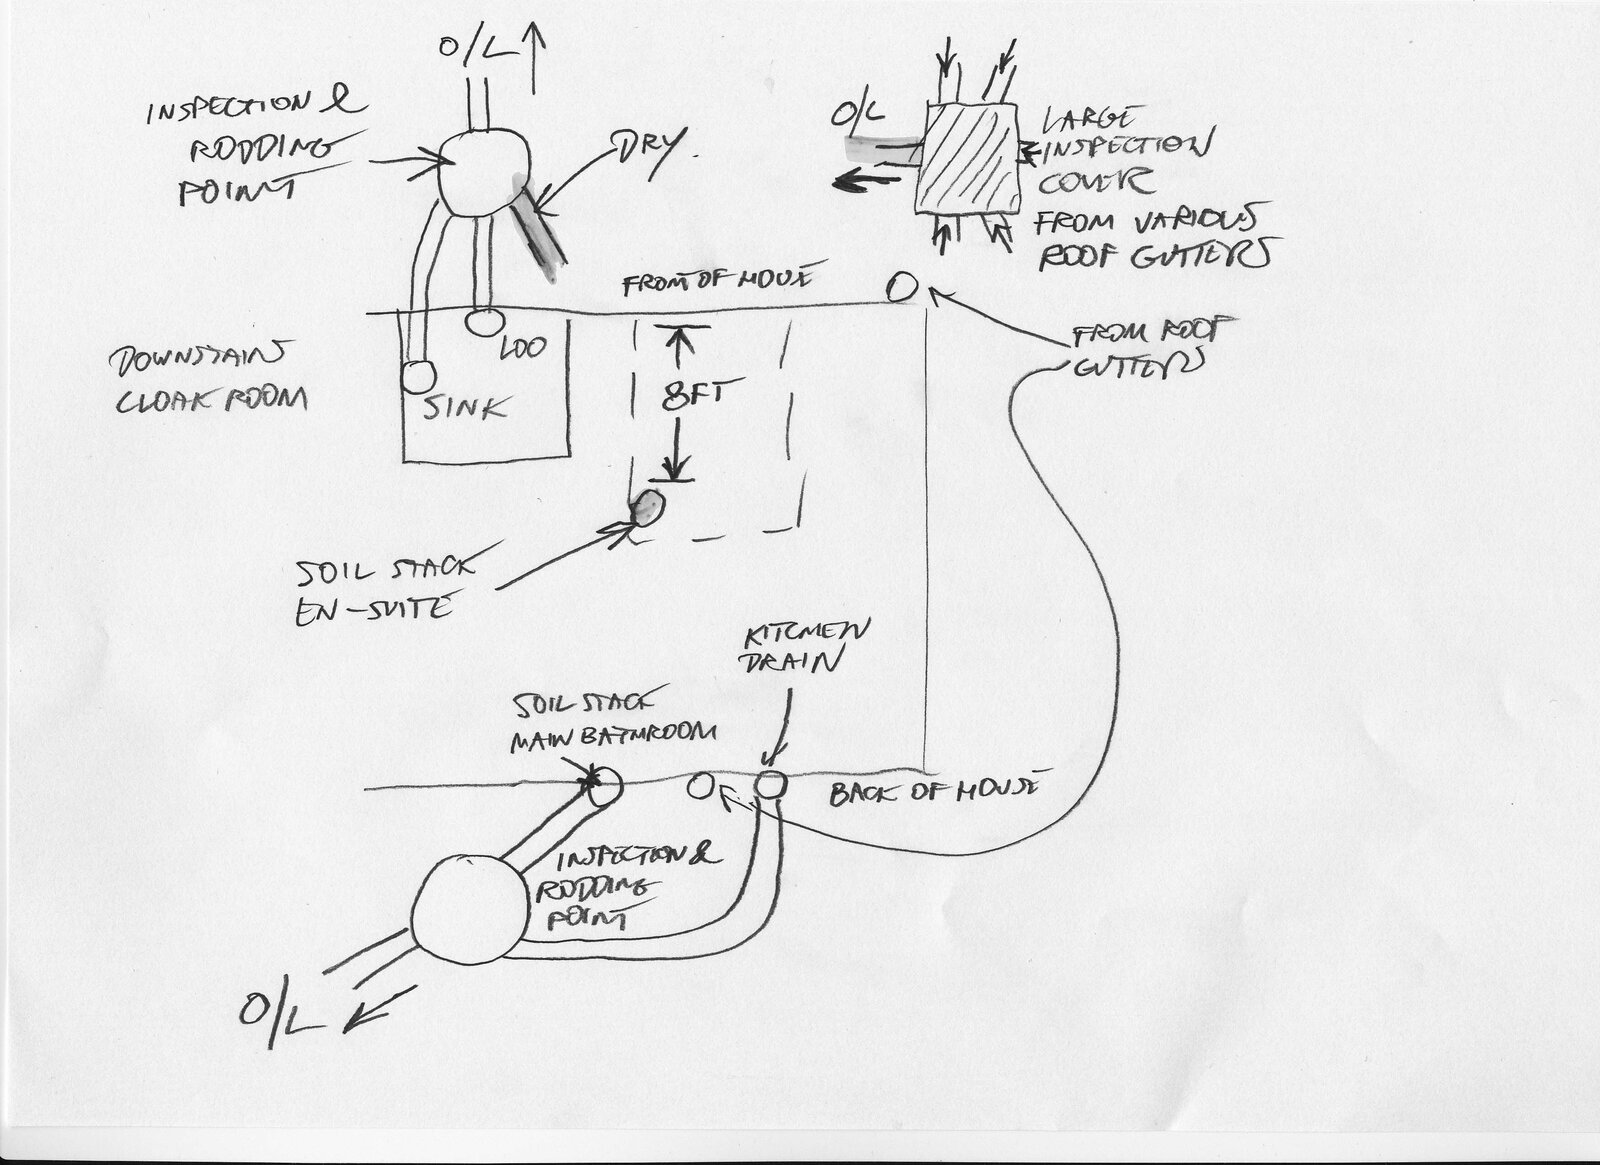 O/L
INSPECTION &
RODDING
POINT
DRY.
O/L
LARGE
INSPECTION
COVER
FROM VARIOUS
ROOF GUTTERS
FRONT OF HOUSE
FROM ROOF
GUTTERS
DOWNSTAIRS
CLOAK ROOM
LOO
SINK
8FT
SOIL STACK
EN-SUITE
KITCHEN
DRAIN
SOIL STACK
MAIN BATHROOM
BACK OF HOUSE
INSPECTION &
RODDING
POINT
O/L